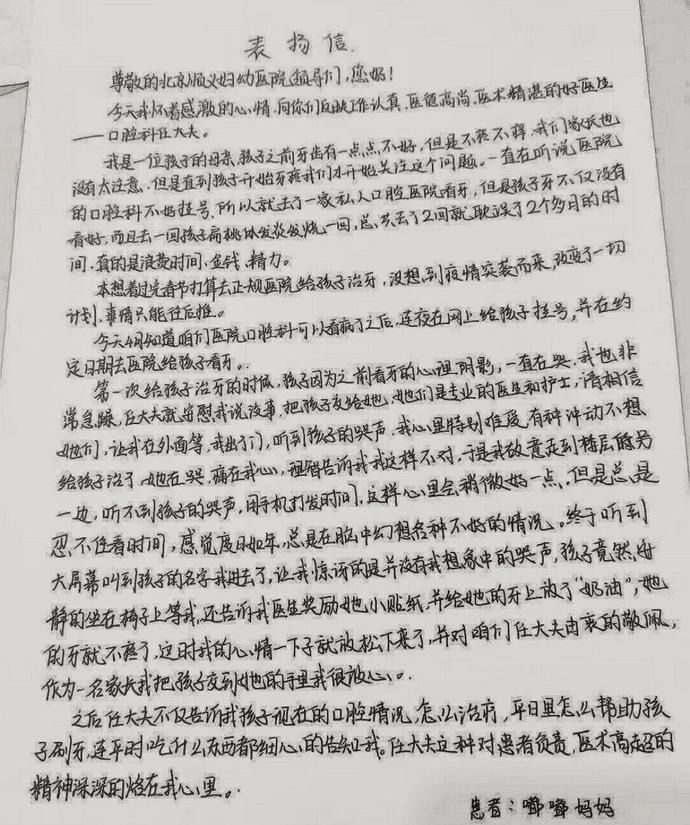 表扬信.
尊敬的北京顺义妇幼医院领导们,您好!
今天我怀着感激的心情,向你们反映工作认真,医德高尚,医术精湛的好医生
——口腔科任大夫。
我是一位孩子的母亲,孩子之前牙齿有一点点不好,但是不疼不痒,我们家长也
没有太注意,但是直到孩子开始牙疼我们才开始关注这个问题。一直在听说医院
的口腔科不好挂号,所以就去了一家私人口腔医院看牙,但是孩子牙不仅没有
看好,而且去一回孩子扁桃体发炎发烧一回,总共去了2回就耽误了2个多月的时
间,真的是浪费时间、金钱、精力。
本想着过完春节打算去正规医院给孩子治牙,没想到疫情突袭而来,改变了一切
计划,事情只能往后推。
今天4月知道咱们医院口腔科可以看病了之后,连夜在网上给孩子挂号,并在约
定日期去医院给孩子看牙。
第一次给孩子治牙的时候,孩子因为之前看牙的心理阴影,一直在哭,我也非
常急躁,任大夫就安慰我说没事,把孩子交给她,她们是专业的医生和护士,请相信
她们,让我在外面等,我出了门,听到孩子的哭声,我心里特别难受,有种冲动不想
给孩子治了,她在哭,痛在我心,理智告诉我我这样不对,于是我故意走到楼层的另
一边,听不到孩子的哭声,用手机打发时间,这样心里会稍微好一点,但是总是
忍不住看时间,感觉度日如年,总是在脑中幻想各种不好的情况。终于听到
大屏幕叫到孩子的名字我进去了,让我惊讶的是并没有我想象中的哭声,孩子竟然安
静的坐在椅子上等我,还告诉我医生奖励她小贴纸,并给她的牙上放了“奶油”,她
的牙就不疼了,这时我的心情一下子就放松下来了,并对咱们任大夫由衷的敬佩,
作为一名家长我把孩子交到她的手里我很放心。
之后任大夫不仅告诉我孩子现在的口腔情况,怎么治疗,平日里怎么帮助孩
子刷牙,连平时吃什么东西都细心的告知我。任大夫这种对患者负责,医术高超的
精神深深的烙在我心里。
患者:嘟嘟妈妈